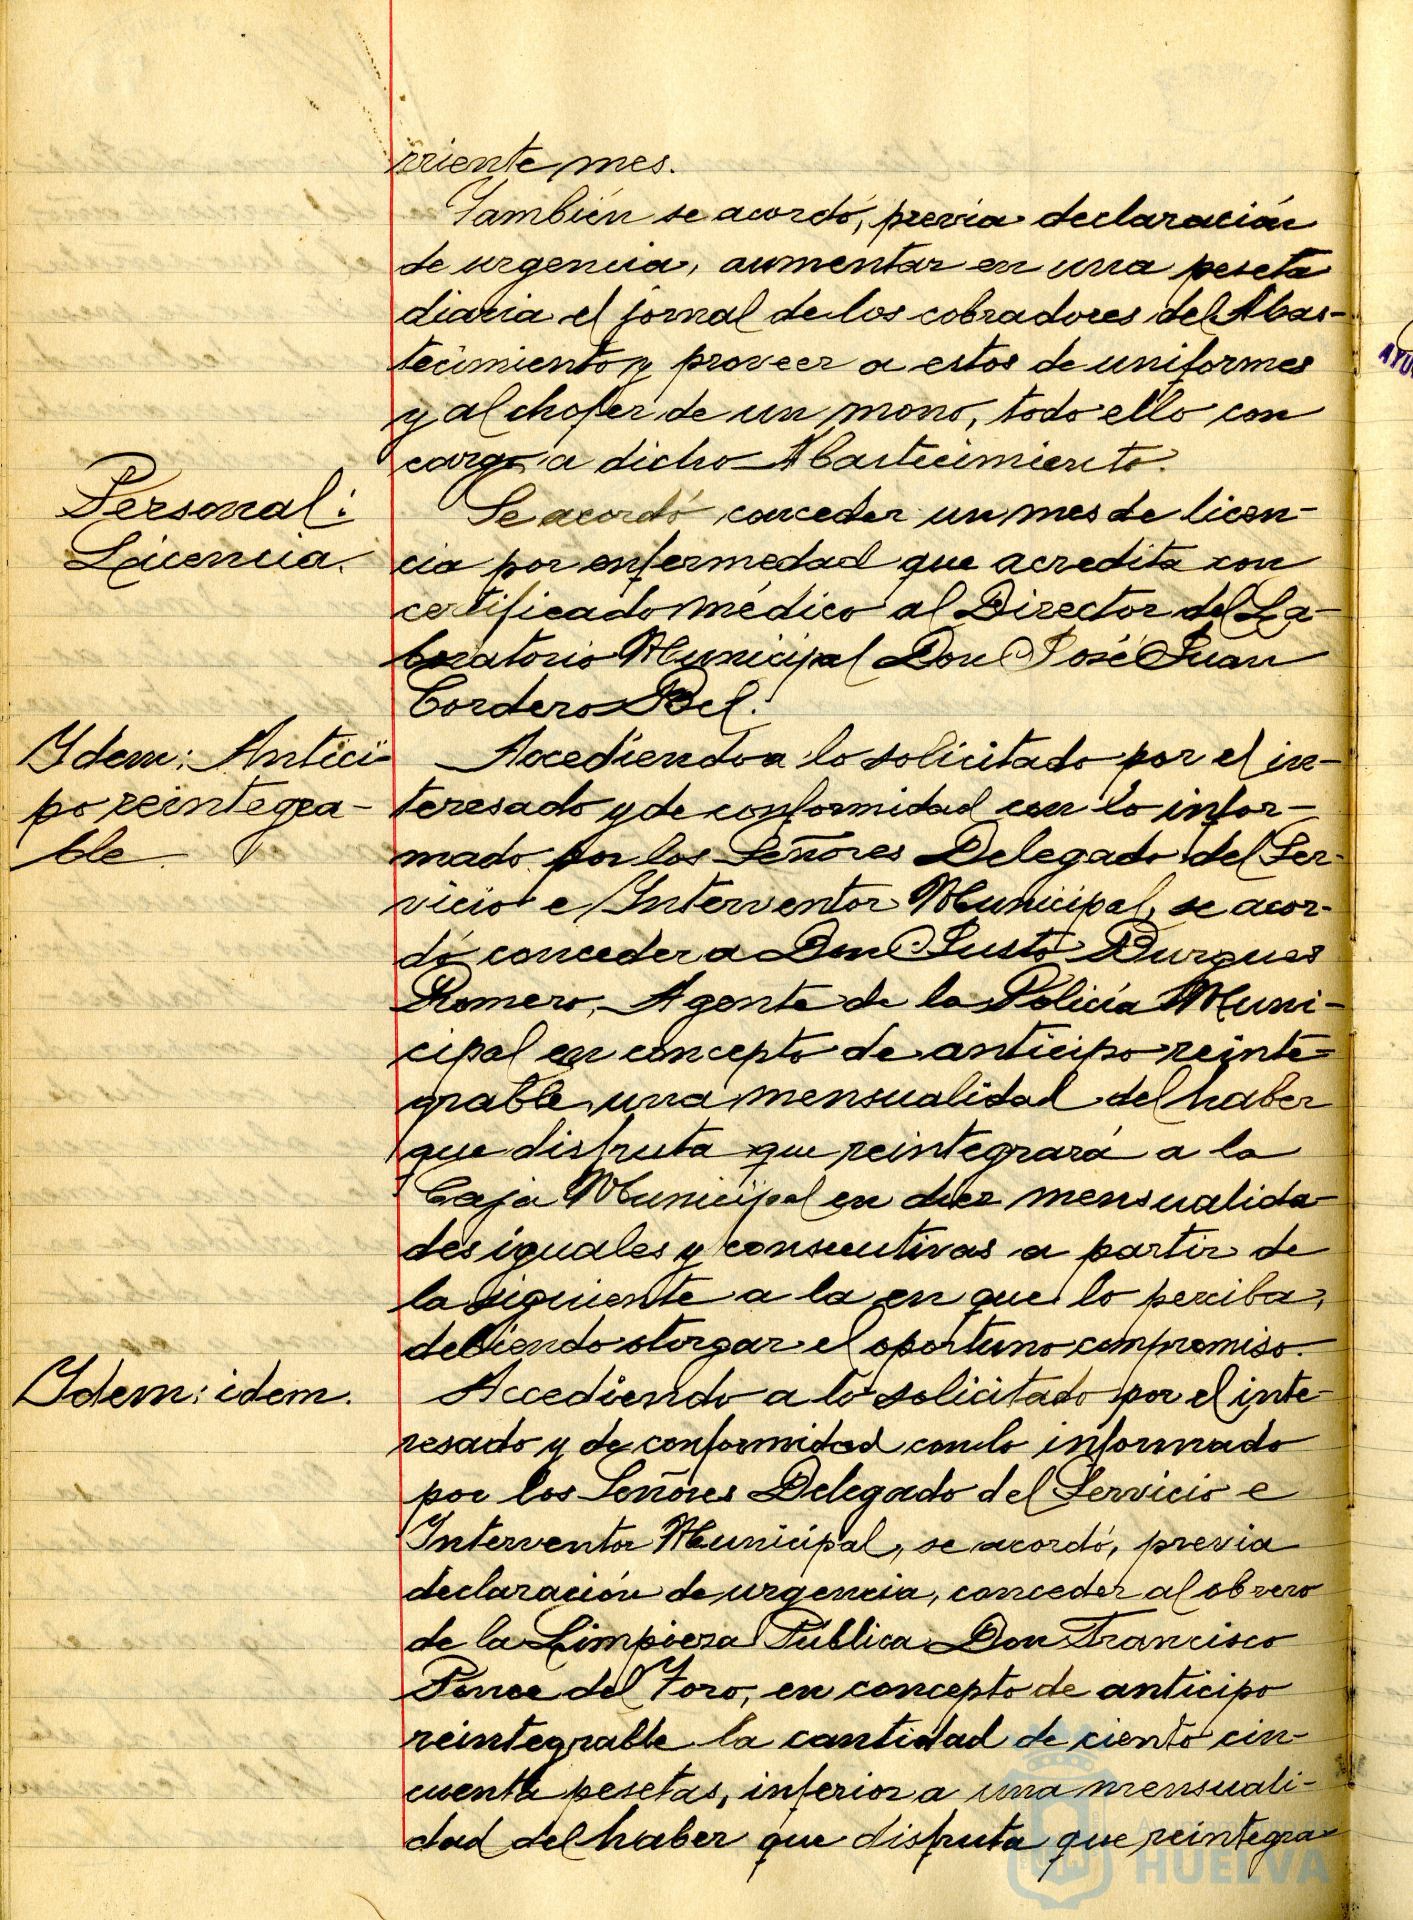 rriente mes.
También se acordó, previa declaración
de urgencia, aumentar en una peseta
diaria el jornal de los cobradores del Abas-
tecimiento y proveer a estos de uniformes
y al chofer de un mono, todo ello con
cargo a dicho Abastecimiento.
Personal:
Licencia.
Se acordó conceder un mes de licen-
cia por enfermedad que acredita con
certificado médico al Director del La-
boratorio Municipal Don José Juan
Cordero Bel.
Idem: Antici-
po reintegra-
ble.
Accediendo a lo solicitado por el in-
teresado y de conformidad con lo infor-
mado por los Señores Delegado del Ser-
vicio e Interventor Municipal, se acor-
dó conceder a Don Justo Burgues
Romero, Agente de la Policía Muni-
cipal en concepto de anticipo reinte-
grable, una mensualidad del haber
que disfruta que reintegrará a la
Caja Municipal en diez mensualida-
des iguales y consecutivas a partir de
la siguiente a la en que lo perciba,
debiendo otorgar el oportuno compromiso.
Idem: idem.
Accediendo a lo solicitado por el inte-
resado y de conformidad con lo informado
por los Señores Delegado del Servicio e
Interventor Municipal, se acordó, previa
declaración de urgencia, conceder al obrero
de la Limpieza Pública Don Francisco
Ponce del Toro, en concepto de anticipo
reintegrable la cantidad de ciento cin-
cuenta pesetas, inferior a una mensuali-
dad del haber que disfruta que reintegra-
HUELVA